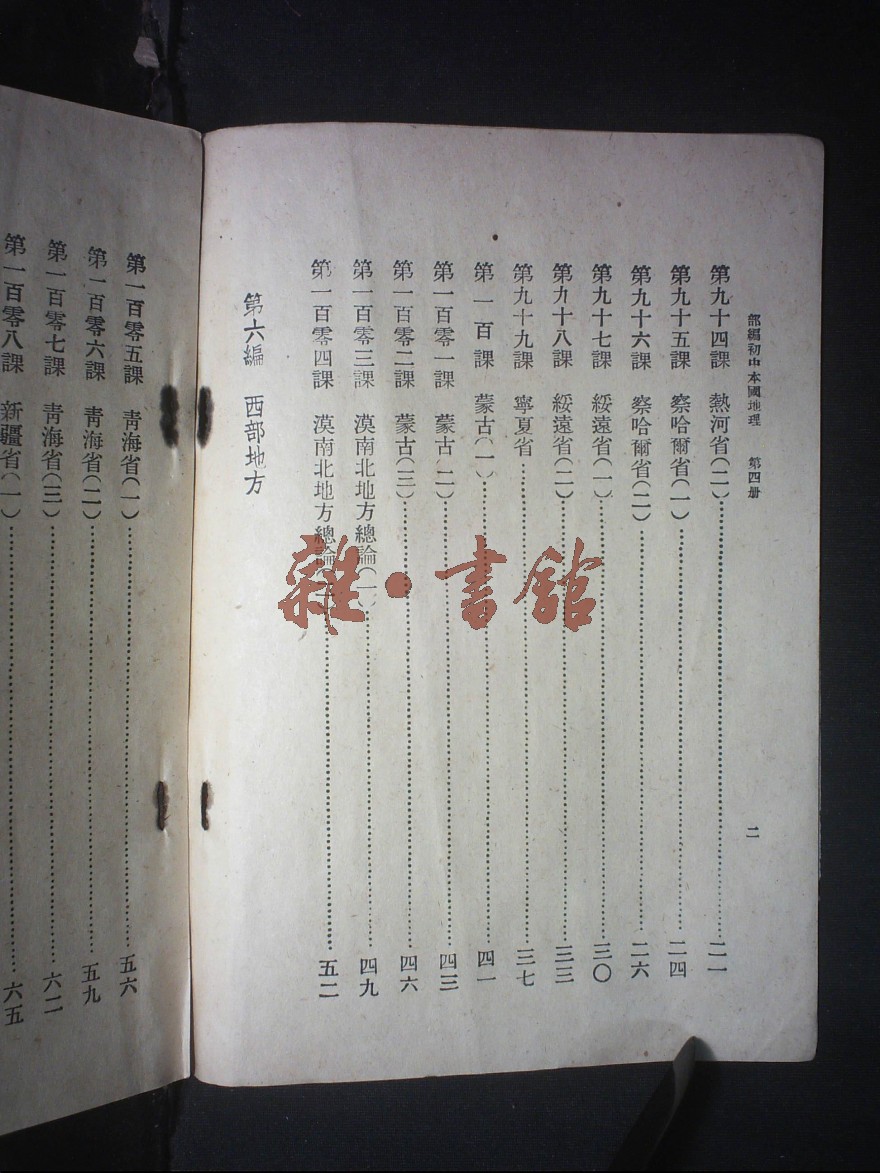 部編初中本國地理　第四册　二
第九十四課　熱河省(二)……二一
第九十五課　察哈爾省(一)……二四
第九十六課　察哈爾省(二)……二六
第九十七課　綏遠省(一)……三〇
第九十八課　綏遠省(二)……三三
第九十九課　寧夏省……三七
第一百課　蒙古(一)……四一
第一百零一課　蒙古(二)……四三
第一百零二課　蒙古(三)……四六
第一百零三課　漠南北地方總論(一)……四九
第一百零四課　漠南北地方總論……五二
第六編　西部地方
第一百零五課　靑海省(一)……五六
第一百零六課　靑海省(二)……五九
第一百零七課　靑海省(三)……六二
第一百零八課　新疆省(一)……六五
雜·書館